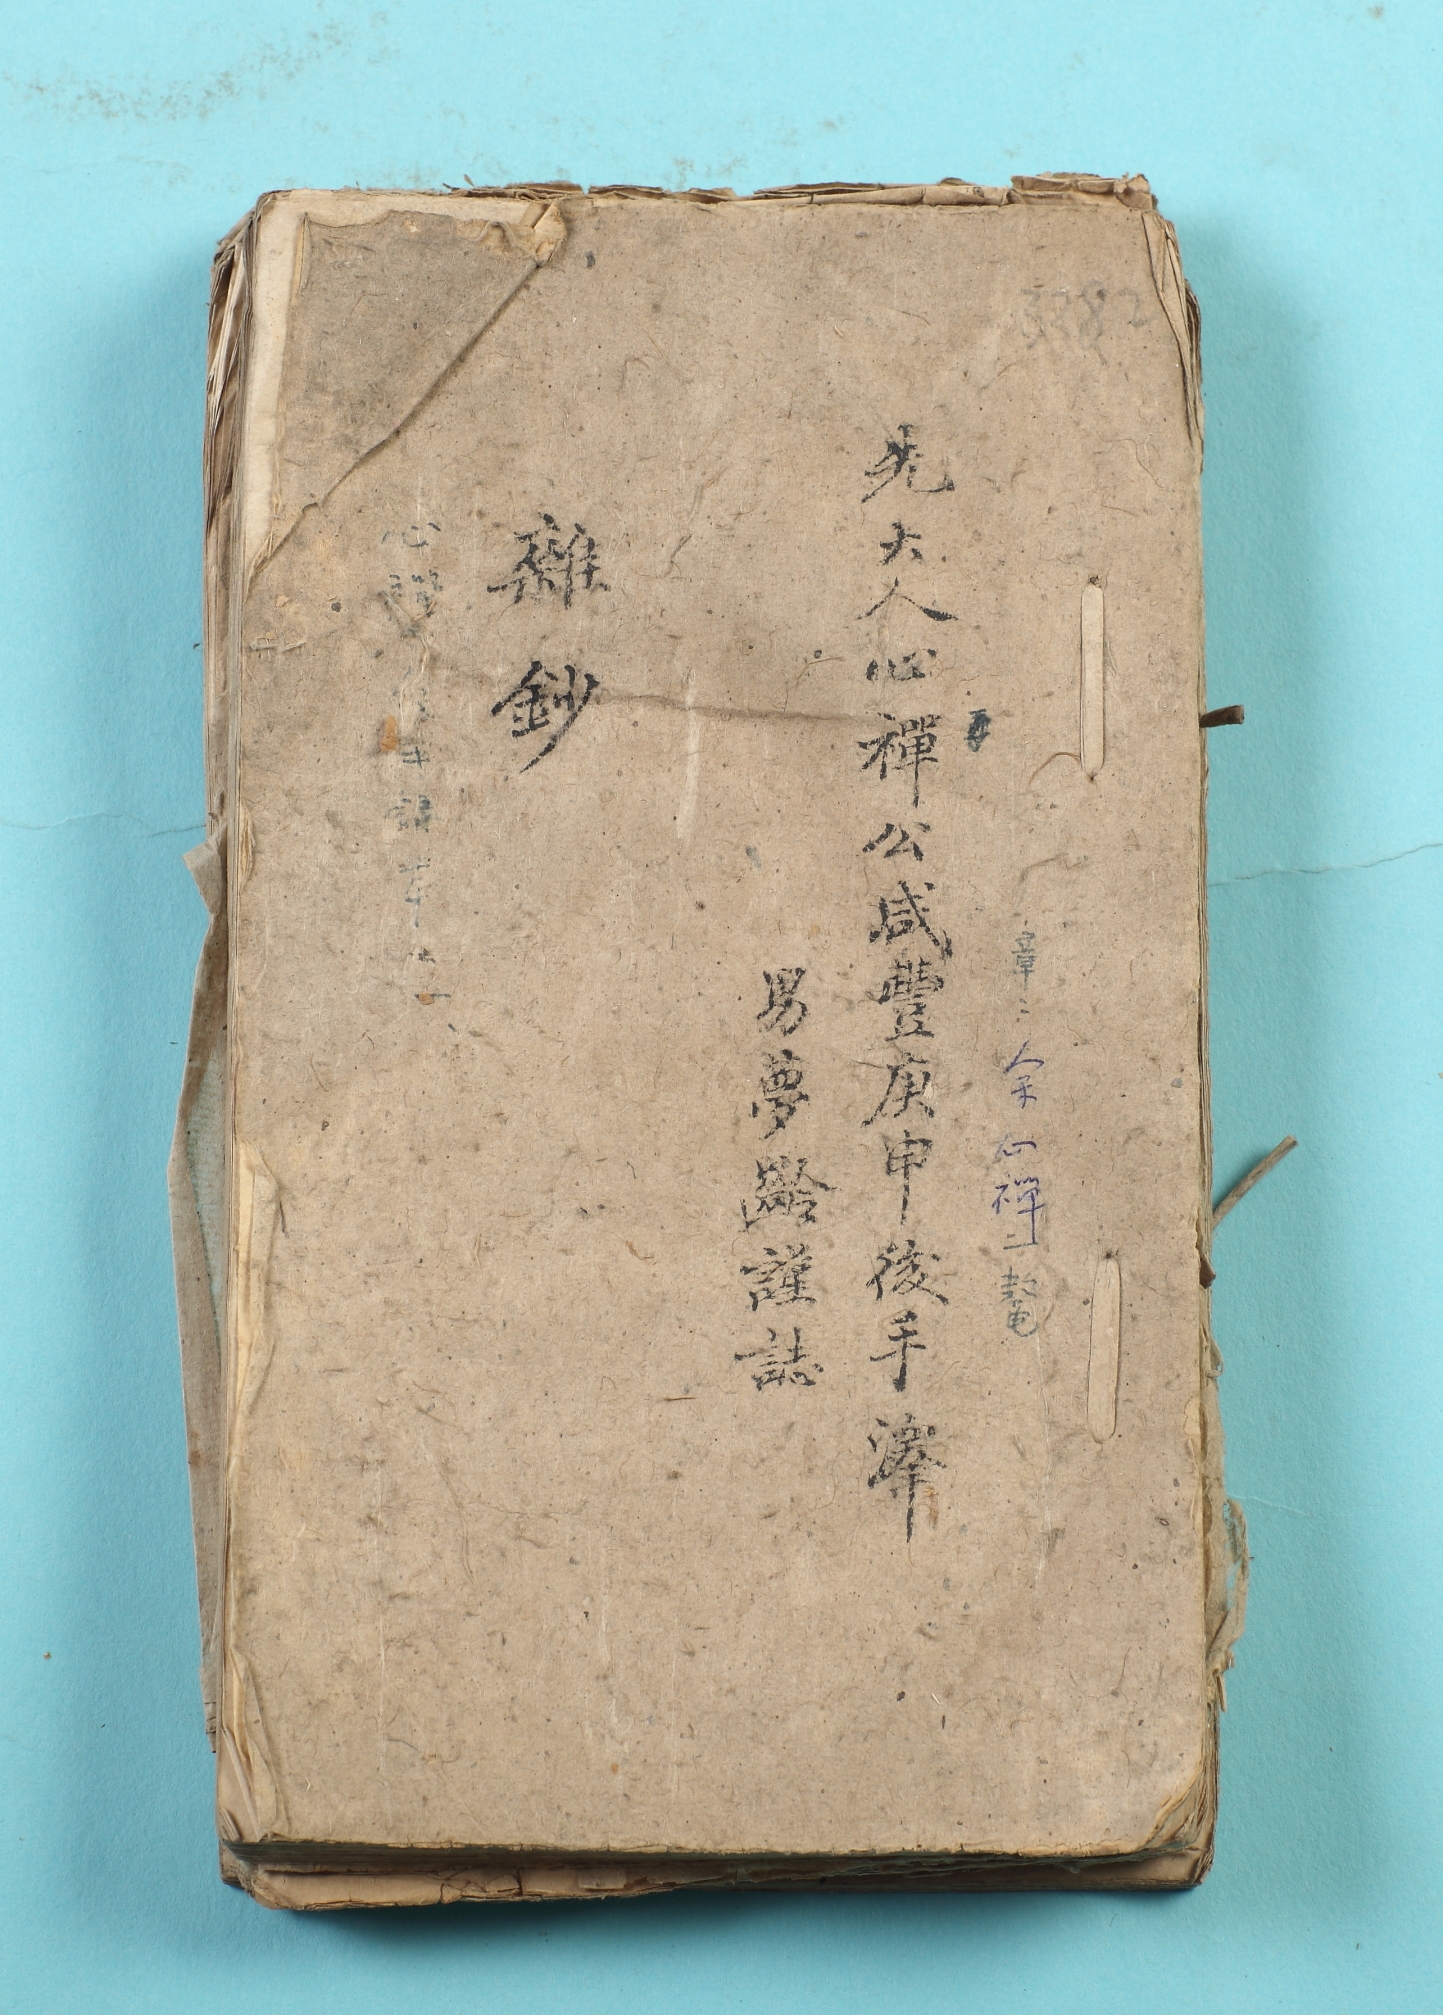 章
余心禪
鼇
先大人心禪公咸豐庚申後手澤
男夢齡謹誌
雜鈔
心禪
3382